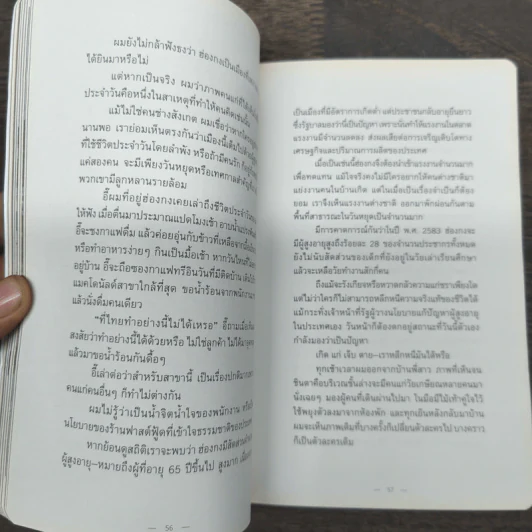 ผมยังไม่กล้าฟันธงว่า ฮ่องกงเป็นเมือง
ได้ยินมาหรือไม่
แต่หากเป็นจริง ผมว่าภาพคนแก่ที่
ประจำวันคือหนึ่งในสาเหตุที่ทำให้คนคิดเช่นนั้น
แม้ไม่ใช่คนช่างสังเกต ผมเชื่อว่าหาก
นานพอ เราย่อมเห็นตรงกันว่าเมืองนี้เต็มไปด้วย
ที่ใช้ชีวิตประจำวันโดยลำพัง หรือถ้ามีคนรัก
แค่สองคน จะมีเพียงวันหยุดหรือเทศกาลสำคัญ
พวกเขามีลูกหลานรายล้อม
อี๊ผมที่อยู่ฮ่องกงเคยเล่าถึงชีวิตประจำวัน
ให้ฟัง เมื่อตื่นมาประมาณแปดโมงเช้า อาบน้ำ
อี๊จะชงกาแฟดื่ม แล้วค่อยอุ่นกับข้าวที่เหลือจาก
หรือทำอาหารง่ายๆ กินเป็นมื้อเช้า หากวันไหน
อยู่บ้าน อี๊จะถือซองกาแฟทรีอินวันที่มีติดบ้าน เดินไป
แมคโดนัลด์สาขาใกล้ที่สุด ขอน้ำร้อนจากพนักงาน
แล้วนั่งดื่มคนเดียว
“ที่ไทยทำอย่างนี้ไม่ได้เหรอ” อี๊ถามเมื่อ
สงสัยว่าทำอย่างนี้ได้ด้วยหรือ ไม่ใช่ลูกค้า
แล้วมาขอน้ำร้อนกันดื้อๆ
อี๊เล่าต่อว่าสำหรับสาขานี้ เป็นเรื่องปกติมาก
คนแก่คนอื่นๆ ก็ทำไม่ต่างกัน
ผมไม่รู้ว่าเป็นน้ำจิตน้ำใจของพนักงาน หรือ
นโยบายของร้านฟาสต์ฟู้ดที่เข้าใจธรรมชาติของ
หากย้อนดูสถิติเราจะพบว่า ฮ่องกงมีสัดส่วน
ผู้สูงอายุ—หมายถึงผู้ที่อายุ 65 ปีขึ้นไป สูงมาก
— 56 —
เป็นเมืองที่มีอัตราการเกิดต่ำ แต่ประชาชนกลับอายุยืนยาว
ซึ่งรัฐบาลมองว่านี้เป็นปัญหา เพราะนั่นทำให้แรงงานในตลาด
แรงงานมีจำนวนลดลง ส่งผลเสียต่อการเจริญเติบโตทาง
เศรษฐกิจและปริมาณการผลิตของประเทศ
เมื่อเป็นเช่นนี้ฮ่องกงจึงต้องนำเข้าแรงงานจำนวนมาก
เพื่อทดแทน แม้ใจจริงคงไม่มีใครอยากให้คนต่างชาติมา
แย่งงานคนในบ้านเกิด แต่ในเมื่อเป็นเรื่องจำเป็นก็ต้อง
ยอม เราจึงเห็นแรงงานต่างชาติ ออกมาพักผ่อนกันตาม
พื้นที่สาธารณะในวันหยุดเป็นจำนวนมาก
มีการคาดการณ์กันว่าในปี พ.ศ. 2583 ฮ่องกงจะ
มีผู้สูงอายุสูงถึงร้อยละ 28 ของจำนวนประชากรทั้งหมด
ยังไม่นับสัดส่วนของเด็กที่ยังอยู่ในวัยเล่าเรียนศึกษา
แล้วจะเหลือวัยทำงานสักกี่คน
ถึงแม้จะรังเกียจหรือหวาดกลัวความแก่ชราเพียงใด
แต่ไม่ว่าใครก็ไม่สามารถหลีกหนีความจริงแท้ของชีวิตได้
แม้กระทั่งเจ้าหน้าที่รัฐผู้วางนโยบายแก้ปัญหาผู้สูงอายุ
ในประเทศเอง วันหน้าก็ต้องตกอยู่สถานะที่วันนี้ตัวเอง
กำลังมองว่าเป็นปัญหา
เกิด แก่ เจ็บ ตาย—เราหลีกหนีมันได้หรือ
ทุกเช้าเวลาผมออกจากบ้านพี่สาว ภาพที่เห็นจน
ชินตาคือบริเวณชั้นล่างจะมีคนแก่วัยเกษียณหลายคนมา
นั่งเฉยๆ มองผู้คนที่เดินผ่านไปมา ในมือมีไม้เท้าคู่ใจไว้
ใช้พยุงตัวลงมาจากห้องพัก และทุกเย็นหลังกลับมาบ้าน
ผมจะเห็นภาพเดิมที่บางครั้งก็เปลี่ยนตัวละครไป บางคราว
ก็เป็นตัวละครเดิม
— 57 —